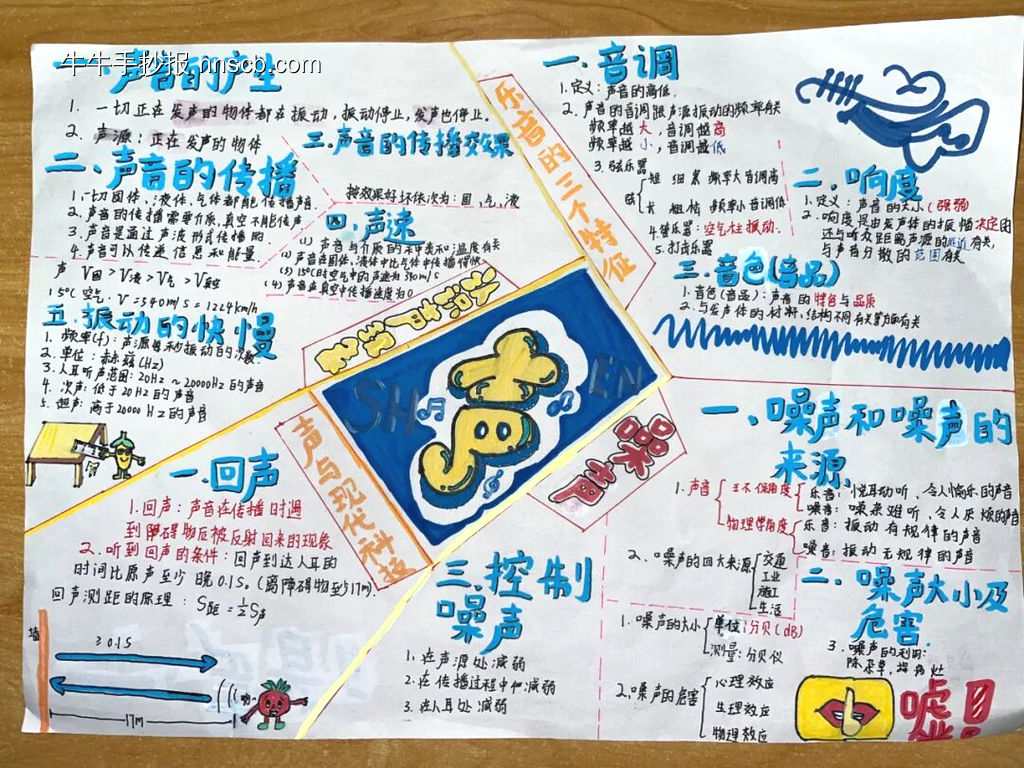 牛牛手抄报 nnscb.com
一.声音的产生
1. 一切正在发声的物体都在振动，振动停止，发声也停止。
2. 声源：正在发声的物体
二、声音的传播
1.一切固体、液体、气体都能传播声音
2.声音的传播需要介质,真空不能传声
3.声音是通过声波形式传播的
4.声音可以传递信息和能量.
声 V固>V液>V气>V真空
15℃ 空气.V=340m/s=1224km/h
三.声音的传播效果
传播效果好坏依次为：固，气，液
四.声速
(1) 声音与介质的种类和温度有关
(2) 声音在固体、液体中比气体中传播得快
(3) 15℃时空气中的声速为340m/s
(4) 声音在真空中传播速度为0
五.振动的快慢
1. 频率(f)：声源每秒振动的次数.
2. 单位：赫兹(Hz)
3.人耳听声范围：20Hz ~ 20000Hz的声音
4. 次声：低于20Hz的声音
5. 超声：高于20000Hz的声音
乐音的三个特征
一.音调
1.定义：声音的高低.
2. 声音的音调跟声源振动的频率有关
频率越大，音调越高
频率越小，音调越低
3.弦乐器
弦
短 细 紧 频率大音调高
长 粗 松 频率小音调低
4.管乐器：空气柱振动.
5.打击乐器
二.响度
1.定义：声音的大小(强弱)
2.响度是由发声体的振幅决定的
还与听众距离声源的远近有关,
与声音分散的范围有关
三.音色(音品)
1.音色(音品)：声音的特色与品质
2.与发声体的材料,结构不同有关
SHENG
声
声与现代科技
一.回声
1.回声：声音在传播时遇
到障碍物反被反射回来的现象
2.听到回声的条件：回声到达人耳的
时间比原声至少 晚0.1S。(离障碍物至少17m).
回声测距的原理：S距=½S声
墙
≥0.1S
17m
三.控制
噪声
1. 在声源处减弱
2. 在传播过程中减弱
3. 在人耳处减弱
一、噪声和噪声的
来源
1.声音
物理学角度
乐音：悦耳动听、令人愉乐的声音
噪音：嘈杂难听、令人厌烦的声音
乐音：振动有规律的声音
噪音：振动无规律的声音
2. 噪声的四大来源
交通
工业
施工
生活
二.噪声大小及
危害.
1.噪声的大小
单位:分贝(dB)
测量:分贝仪
2.噪声的危害
心理效应
生理效应
物理效应
3. 噪声的利用:
嘘!